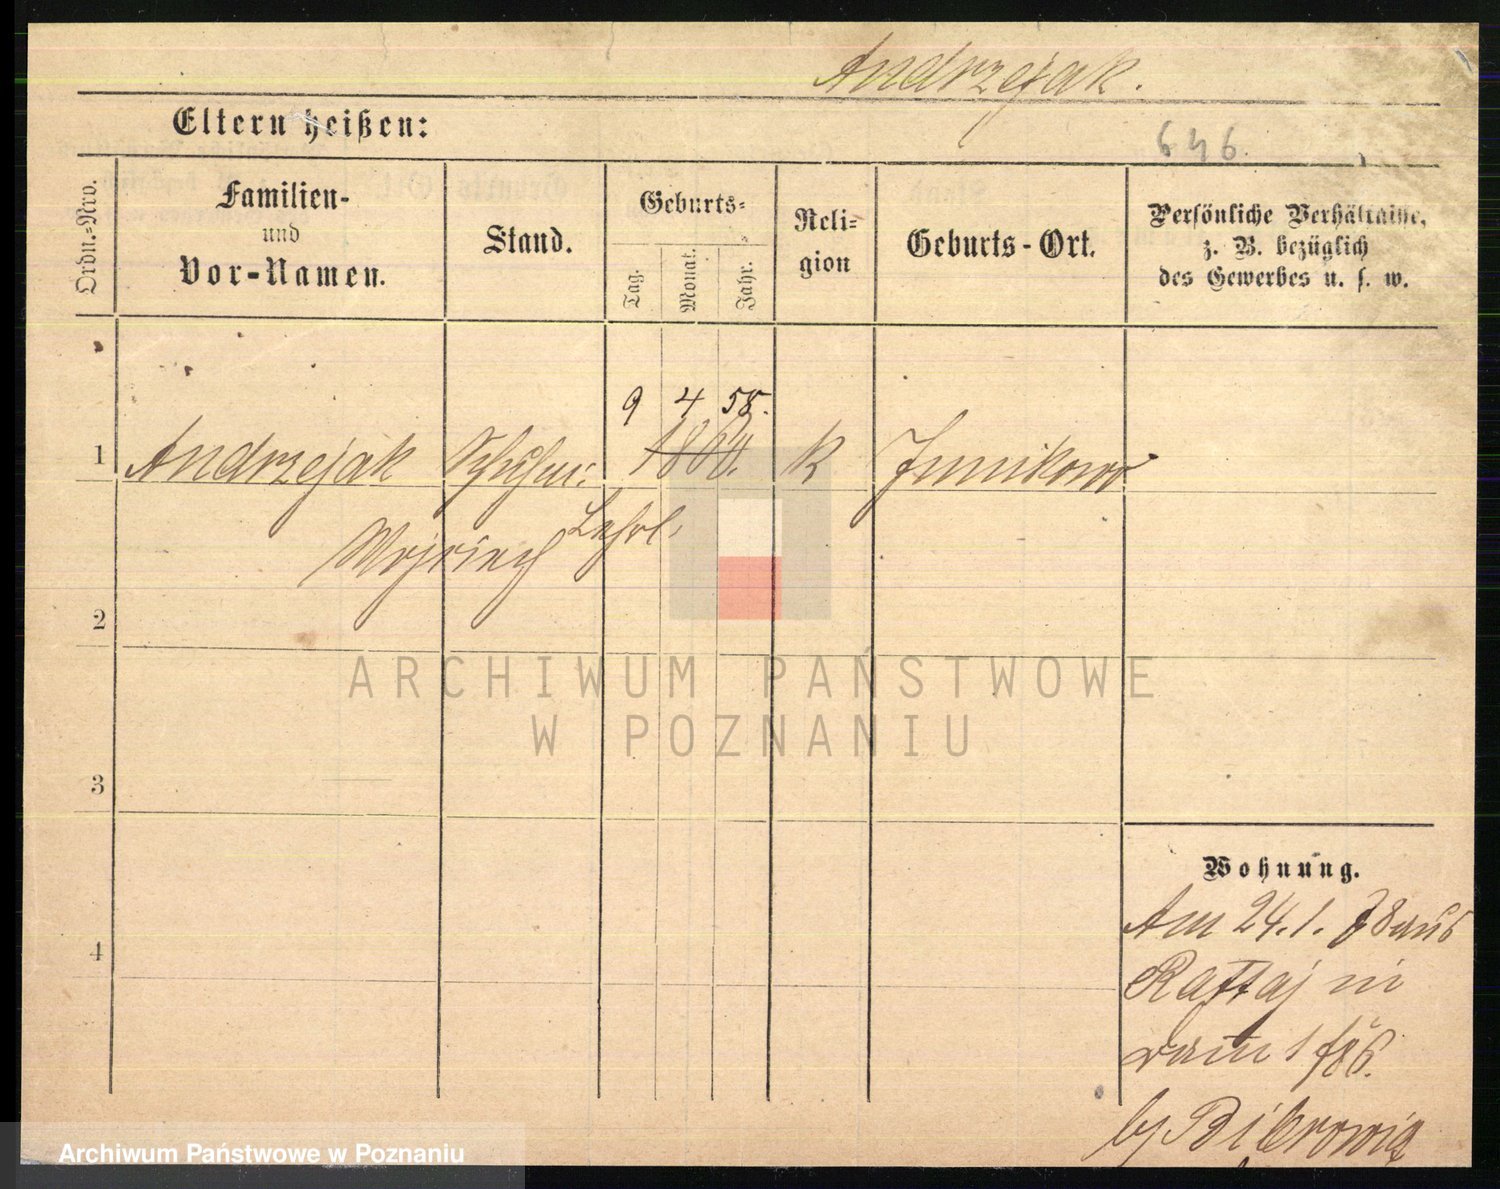 Andrzejak.
Eltern heißen:
646.
Ordn.-Nro.
Familien-
und
Vor-Namen.
Stand.
Geburts-
Tag.
Monat.
Jahr.
Reli-
gion
Geburts-Ort.
Persönliche Verhältnisse,
z. B. bezüglich
des Gewerbes u. s. w.
9 4 58.
1 Andrzejak Schuhm: 1860. k Junikowo
Wojciech Lehrl.
2
ARCHIWUM PAŃSTWOWE
W POZNANIU
3
Wohnung.
Am 24.1.78 aus
4
Rattaj in
1
by
Archiwum Państwowe w Poznaniu